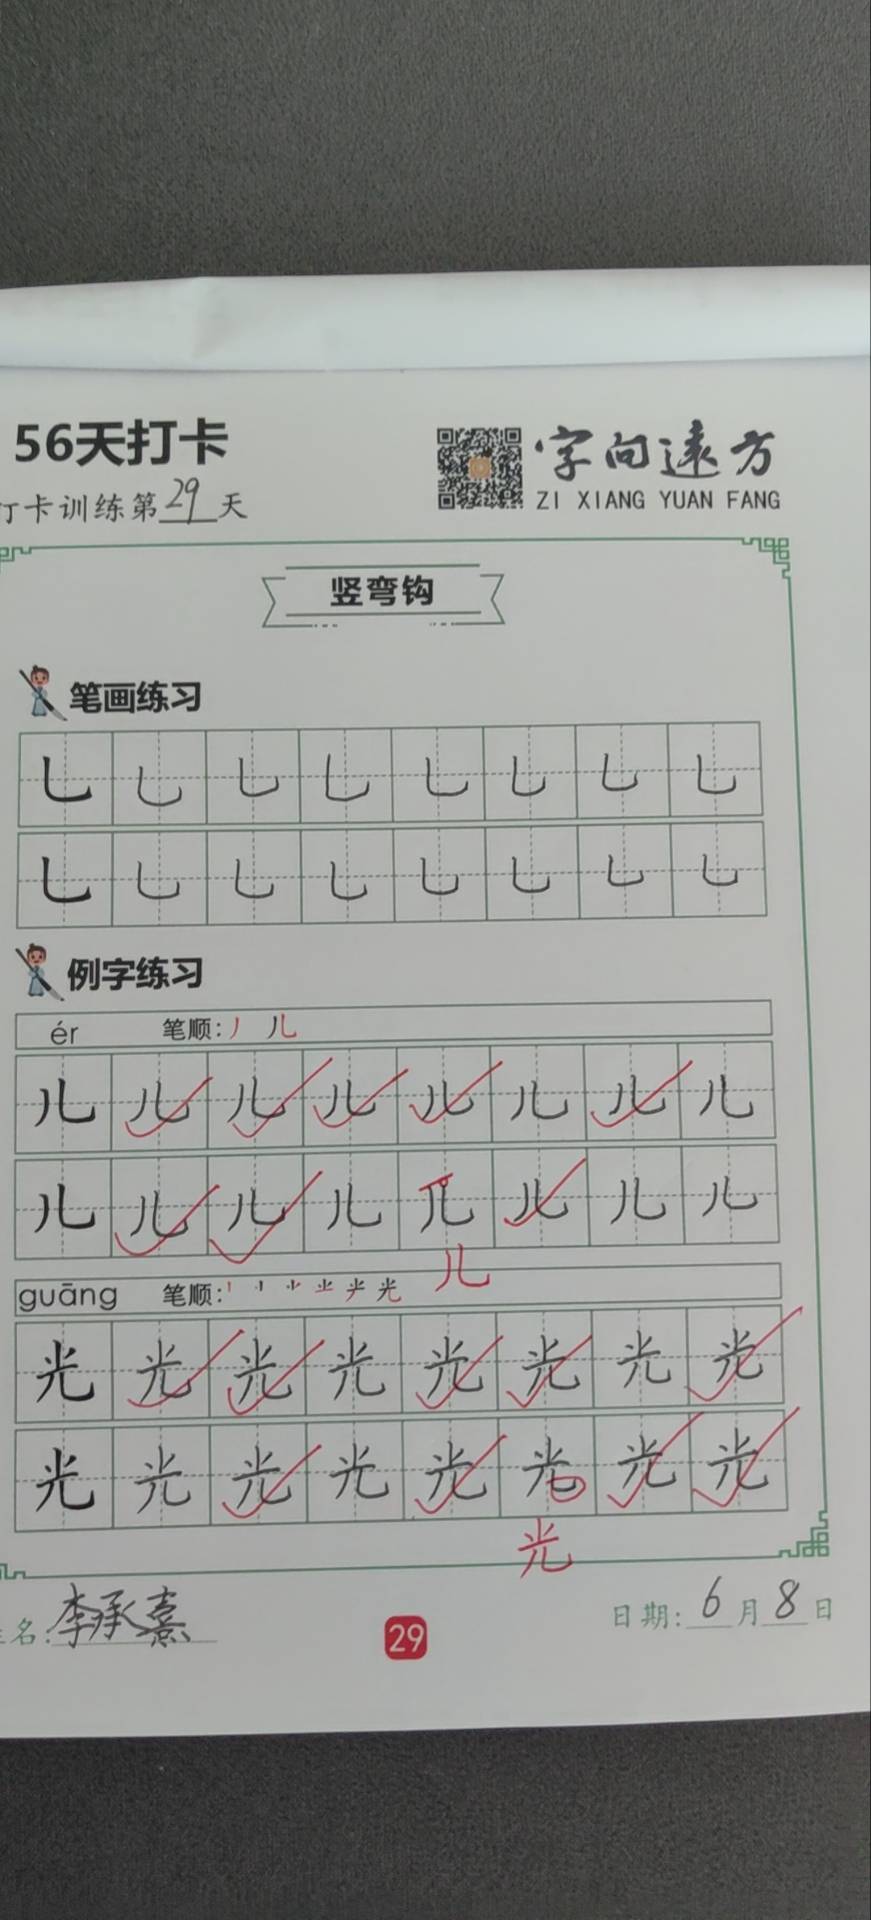 56天打卡
打卡训练第29天
字向遠方
ZI XIANG YUAN FANG
竖弯钩
笔画练习
乚 乚 乚 乚 乚 乚 乚 乚
乚 乚 乚 乚 乚 乚 乚 乚
例字练习
ér 笔顺: 丿 儿
儿 儿 儿 儿 儿 儿 儿 儿
儿 儿 儿 儿 儿 儿 儿 儿
儿
guāng 笔顺: 光
光 光 光 光 光 光 光 光
光 光 光 光 光 光 光 光
光
名: 李承熹
29
日期: 6月8日